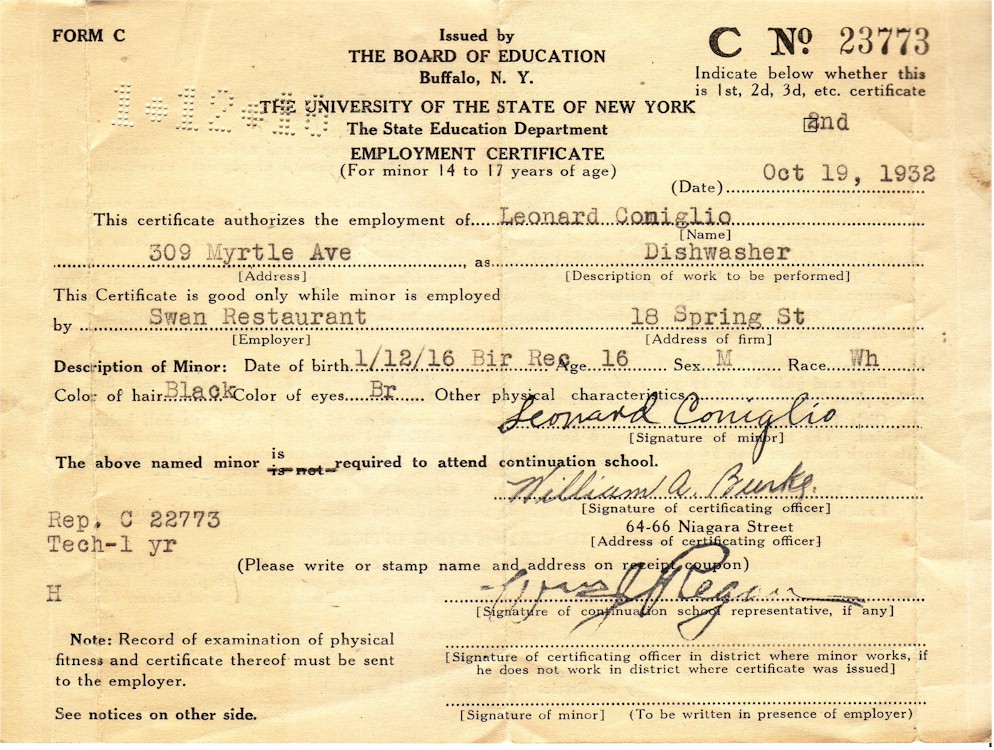 FORM C
Issued by
THE BOARD OF EDUCATION
Buffalo, N. Y.
C Nº 23773
Indicate below whether this
is 1st, 2d, 3d, etc. certificate
2nd
1*12*
THE UNIVERSITY OF THE STATE OF NEW YORK
The State Education Department
EMPLOYMENT CERTIFICATE
(For minor 14 to 17 years of age)
(Date) Oct 19, 1932
This certificate authorizes the employment of Leonard Coniglio
[Name]
309 Myrtle Ave, as Dishwasher
[Address] [Description of work to be performed]
This Certificate is good only while minor is employed
by Swan Restaurant 18 Spring St
[Employer] [Address of firm]
Description of Minor: Date of birth 1/12/16 Bir Rec Age 16 Sex M Race Wh
Color of hair Black Color of eyes Br Other physical characteristics
Leonard Coniglio
[Signature of minor]
The above named minor is is not required to attend continuation school.
William A. Burke
[Signature of certifying officer]
64-66 Niagara Street
[Address of certificating officer]
Rep. C 22773
Tech-1 yr
(Please write or stamp name and address on receipt coupon)
H
Regan
[Signature of continuation school representative, if any]
Note: Record of examination of physical
fitness and certificate thereof must be sent
to the employer.
[Signature of certificating officer in district where minor works, if
he does not work in district where certificate was issued]
See notices on other side.
[Signature of minor] (To be written in presence of employer)